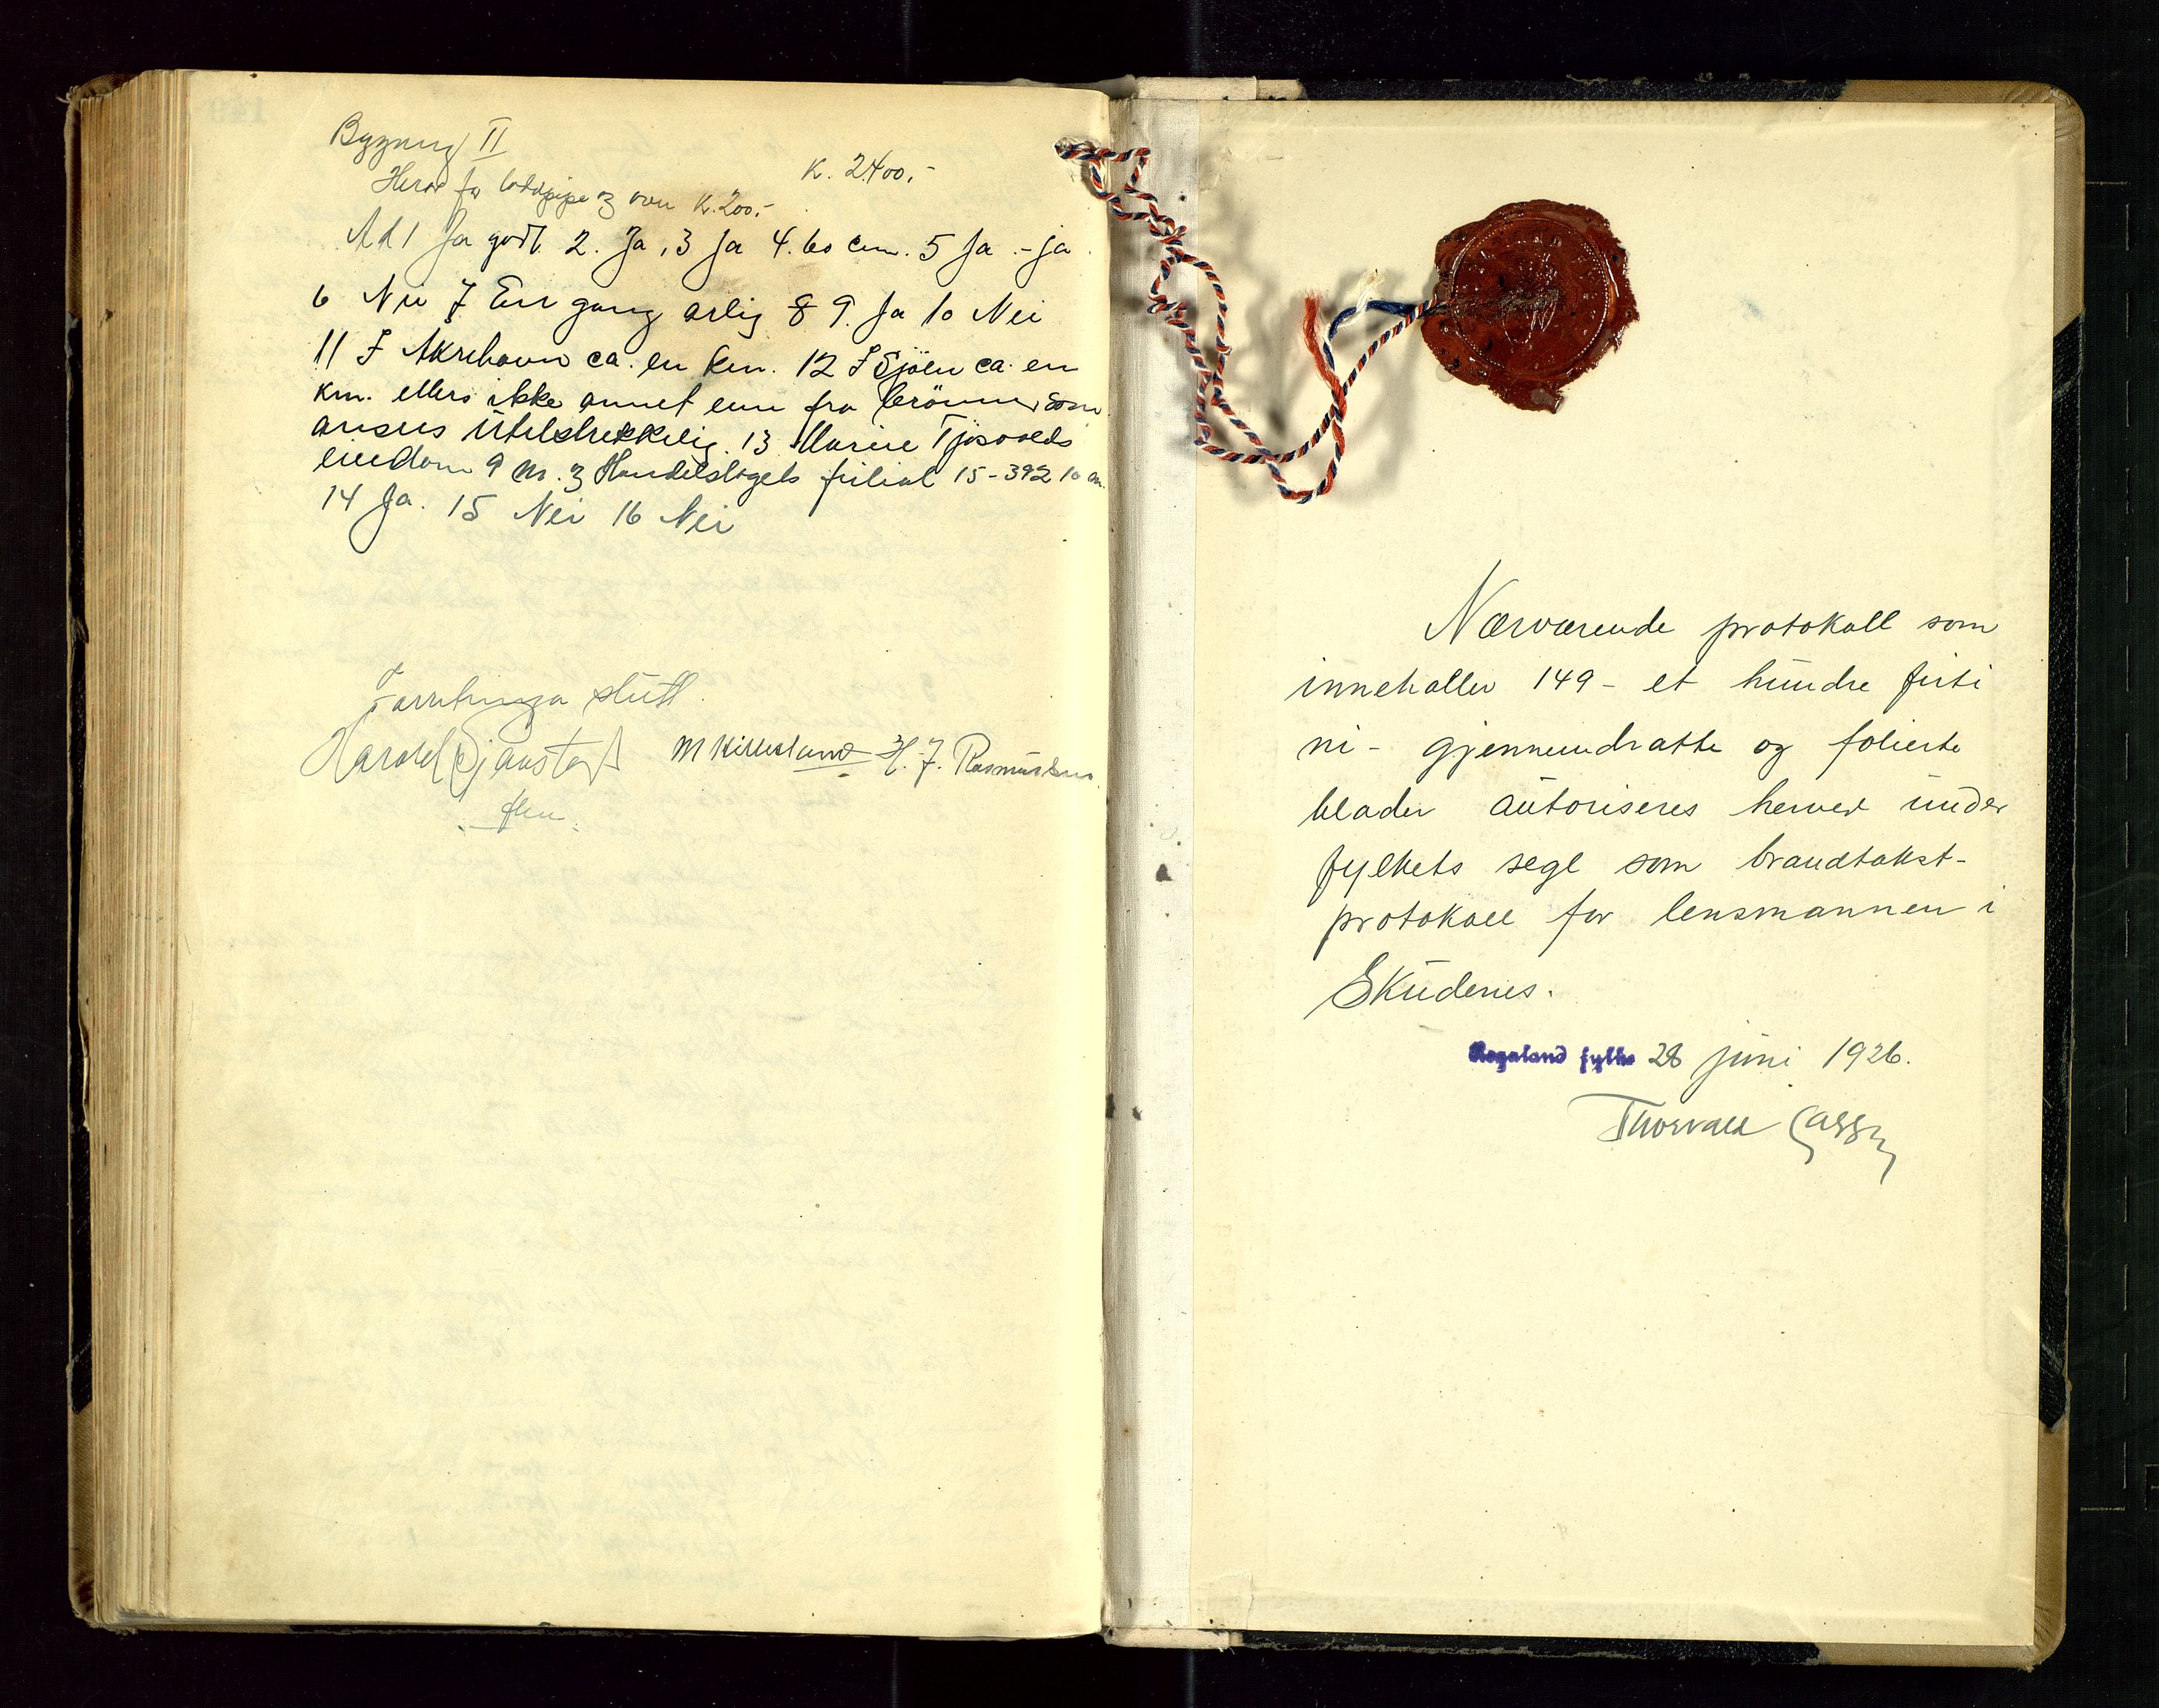 Bygning II
K. 2400.-
Herav for lødepipe og ovn K. 200.-
Ad 1 Ja godt. 2. Ja, 3 Ja 4. 60 cm. 5 Ja - ja
6 Nei 7 En gang årlig 8 9. Ja 10 Nei
11 I Akrehavn ca. en km. 12 I Sjöen ca. en
km. ellers ikke annet enn fra brönner som
ansees Utilstrekkelig. 13 Marine Tjösvolds
eiendom 9 m. og Handelslagets filial 15 - 392 10 m.
14 Ja. 15 Nei 16 Nei
Forretninga slutt.
Harald M Hillesland H. J. Rasmussen
Nærværende protokoll som
inneholler 149 - et hundre firti
ni - gjennemdratte og folierte
blader autoriseres herved under
fylkets segl som brandtakst-
protokoll for lensmannen i
Skudenes.
Rogaland fylke 28 juni 1926.
Thorvald